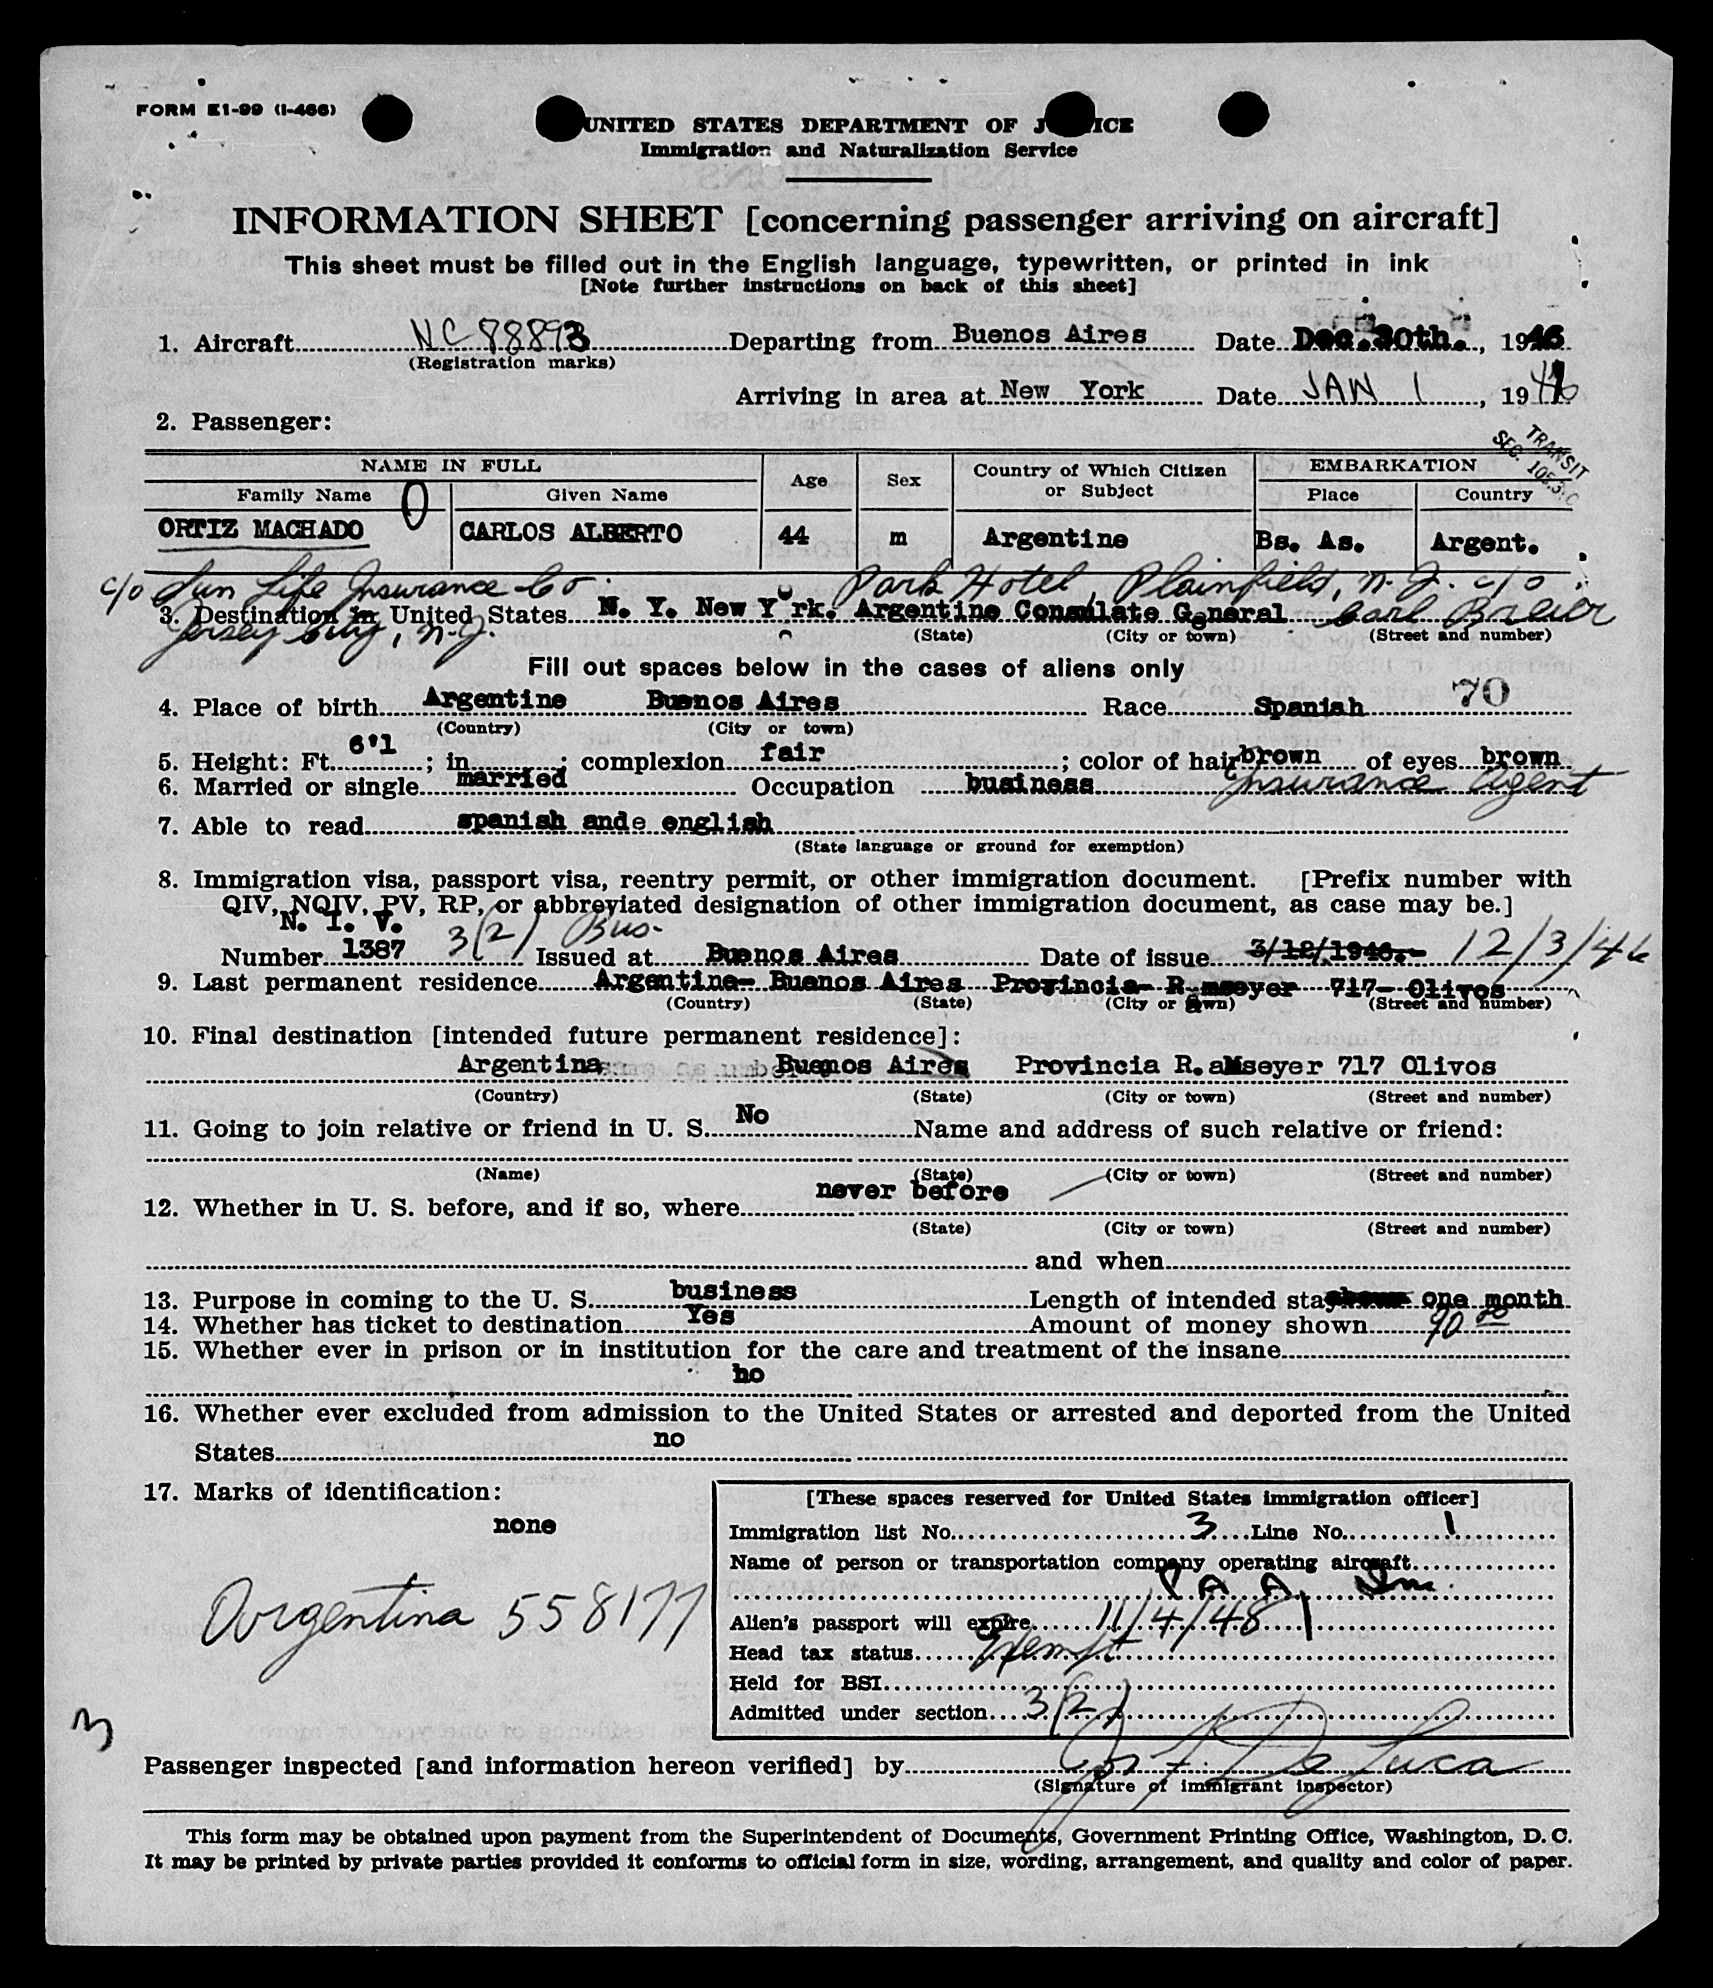 FORM E1-99 (I-466)
UNITED STATES DEPARTMENT OF J ICE
Immigration and Naturalization Service
INFORMATION SHEET [concerning passenger arriving on aircraft]
This sheet must be filled out in the English language, typewritten, or printed in ink
[Note further instructions on back of this sheet]
1. Aircraft NC 88893 Departing from Buenos Aires Date Dec. 30th., 1946
(Registration marks)
Arriving in area at New York Date JAN 1, 19
2. Passenger:
TRANSIT
SEC.
NAME IN FULL Age Sex Country of Which Citizen or Subject EMBARKATION
Family Name Given Name Place Country
ORTIZ MACHADO O CARLOS ALBERTO 44 m Argentine Bs. As. Argent.
c/o Sun Life Insurance Co. Park Hotel, Plainfield, N.J. c/o
3. Destination in United States N. Y. New York. Argentine Consulate General Carl
Jersey City, N.J. (State) (City or town) (Street and number)
Fill out spaces below in the cases of aliens only
70
4. Place of birth Argentine Buenos Aires Race Spanish
(Country) (City or town)
5. Height: Ft. 6'1; in.; complexion fair; color of hair brown of eyes brown
6. Married or single married Occupation business Insurance Agent
7. Able to read spanish ande english
(State language or ground for exemption)
8. Immigration visa, passport visa, reentry permit, or other immigration document. [Prefix number with
QIV, NQIV, PV, RP, or abbreviated designation of other immigration document, as case may be.]
N. I. V.
Number 1387 3(2) Bus. Issued at Buenos Aires Date of issue 3/12/1946.- 12/3/46
9. Last permanent residence Argentina- Buenos Aires Provincia- R. mseyer 717- Olivos
(Country) (State) (City or town) (Street and number)
10. Final destination [intended future permanent residence]:
Argentina Buenos Aires Provincia R.aMseyer 717 Olivos
(Country) (State) (City or town) (Street and number)
11. Going to join relative or friend in U. S. No Name and address of such relative or friend:
(Name) (State) (City or town) (Street and number)
12. Whether in U. S. before, and if so, where never before
(State) (City or town) (Street and number)
and when
13. Purpose in coming to the U. S. business Length of intended stay one month
14. Whether has ticket to destination Yes Amount of money shown 90 00
15. Whether ever in prison or in institution for the care and treatment of the insane
no
16. Whether ever excluded from admission to the United States or arrested and deported from the United
States no
17. Marks of identification:
none
Argentina 558177
3
[These spaces reserved for United States immigration officer]
Immigration list No. 3 Line No. 1
Name of person or transportation company operating aircraft
P. A. A. Inc.
Alien's passport will expire 11/4/48
Head tax status Exempt
Held for BSI
Admitted under section 3(2)
Passenger inspected [and information hereon verified] by De Luca
(Signature of immigrant inspector)
This form may be obtained upon payment from the Superintendent of Documents, Government Printing Office, Washington, D. C.
It may be printed by private parties provided it conforms to official form in size, wording, arrangement, and quality and color of paper.